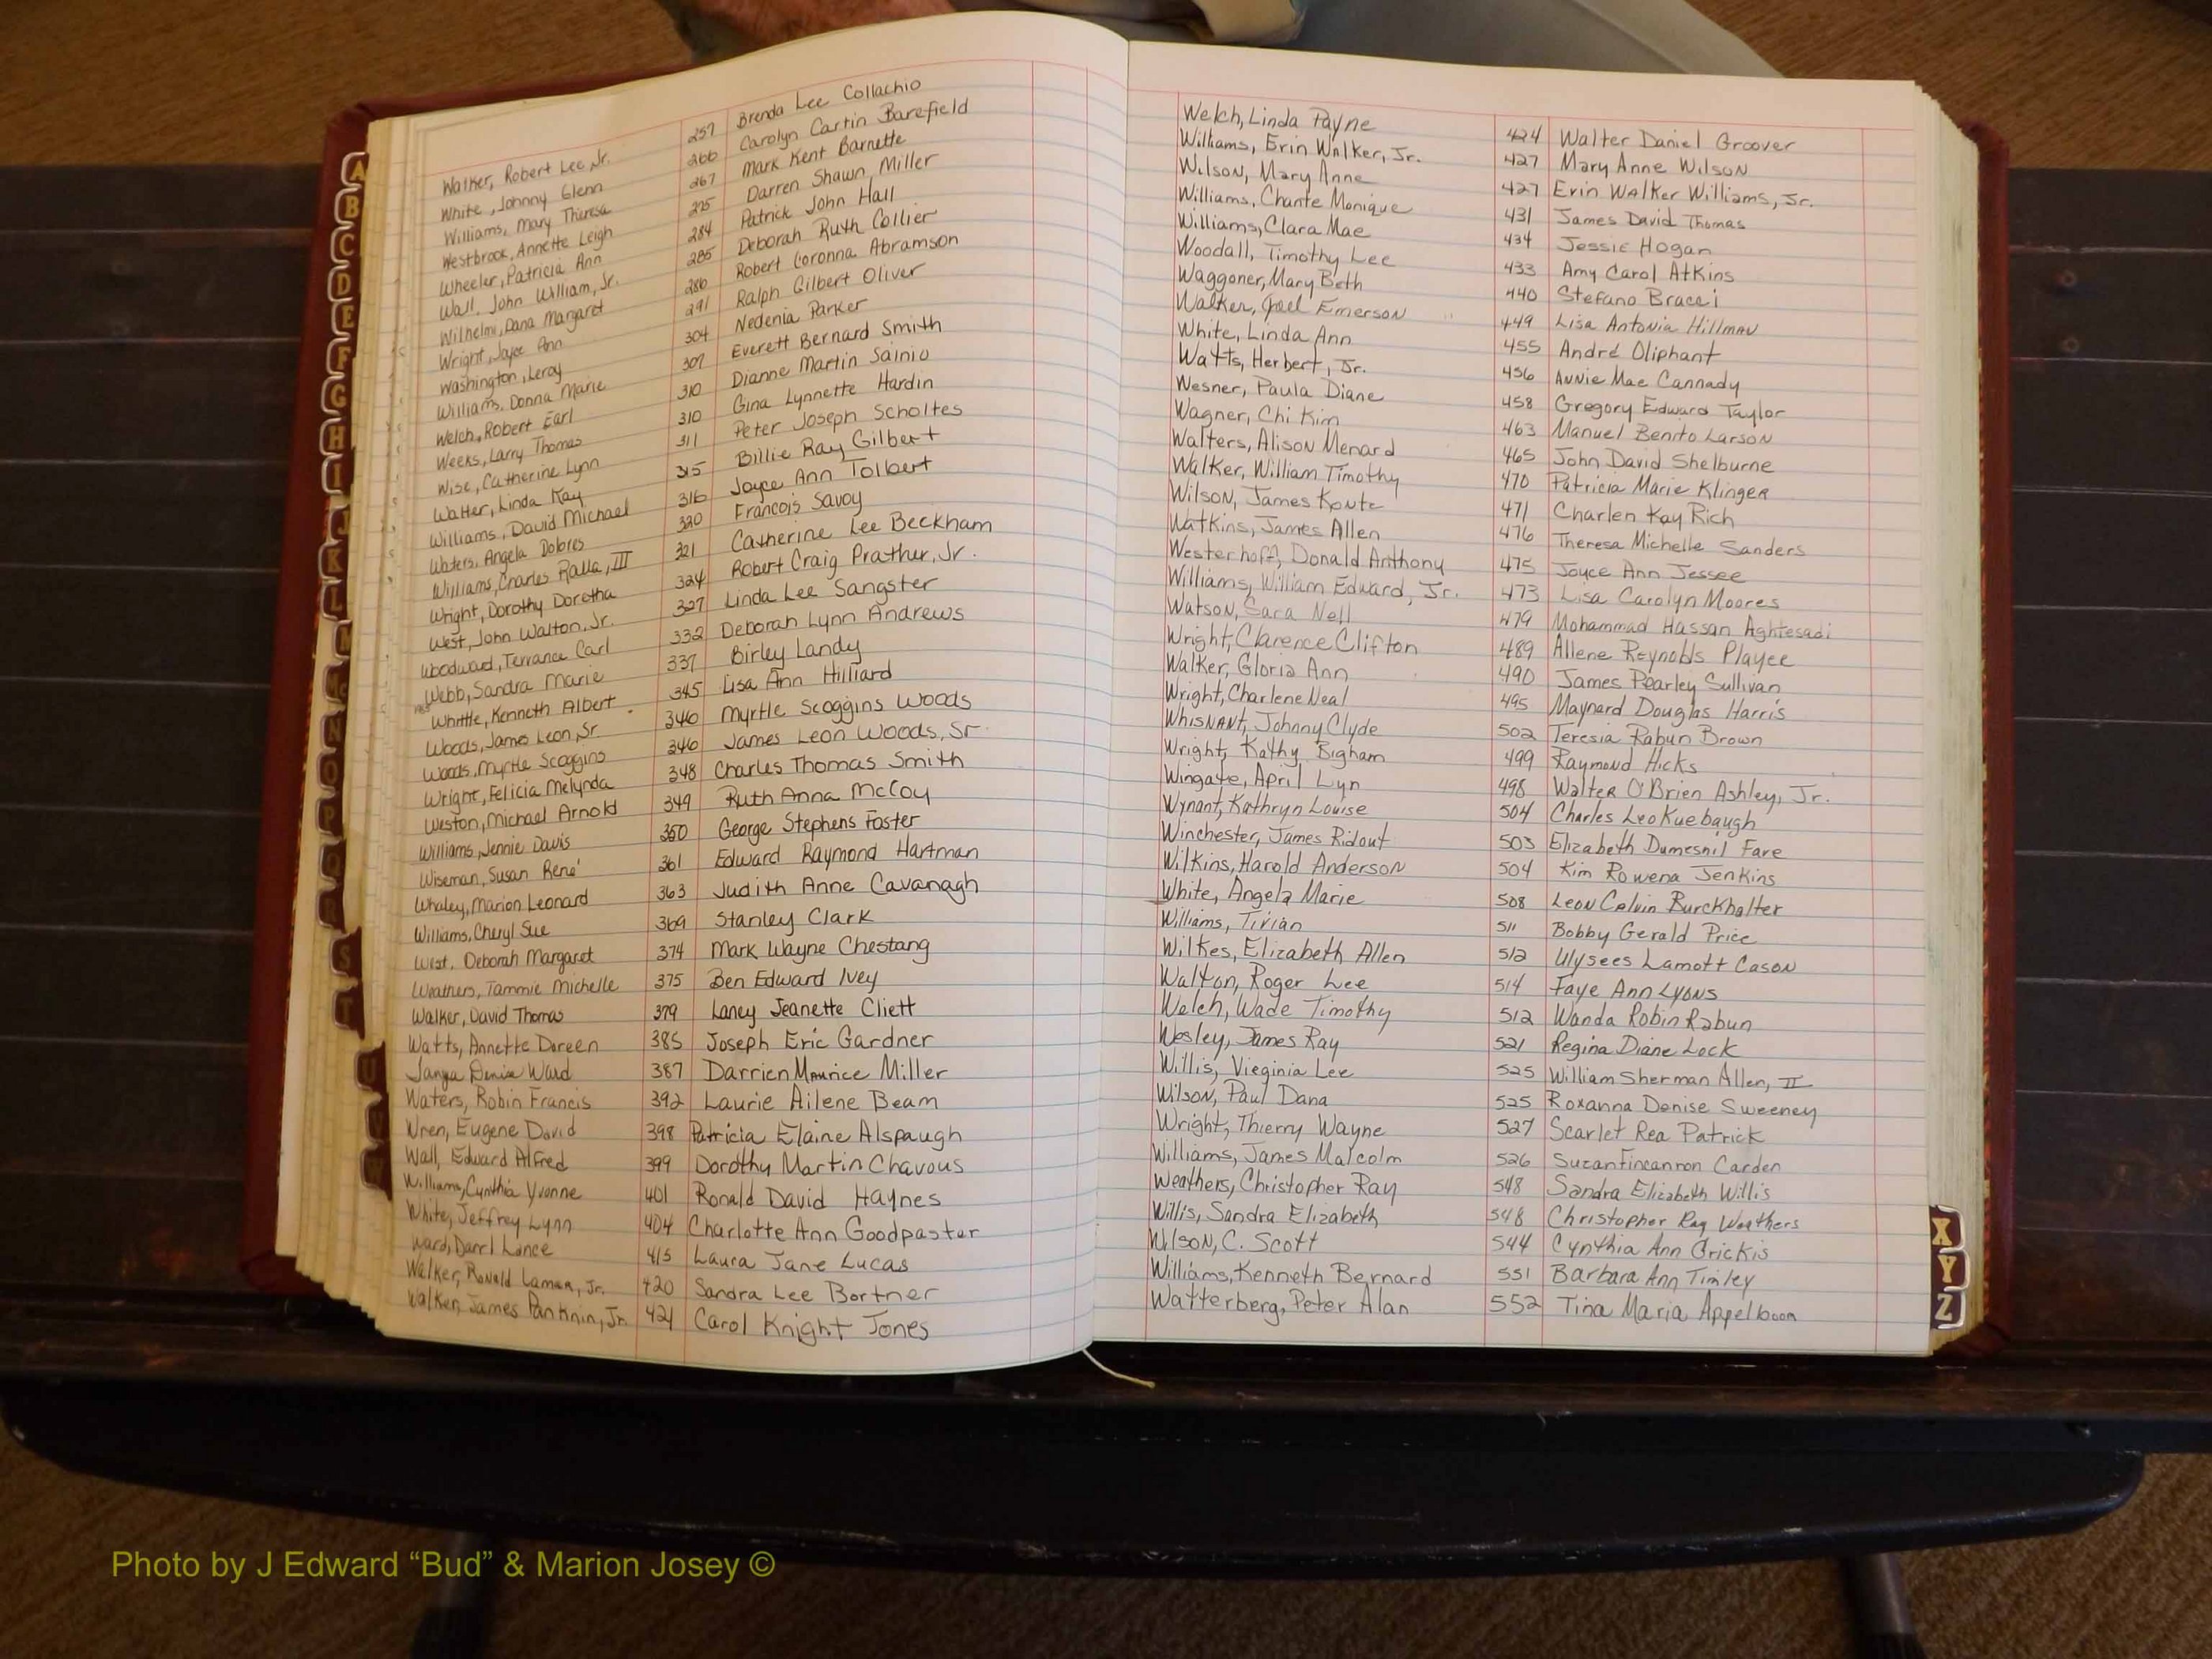 Walker, Robert Lee, Jr. 257 Brenda Lee Collachio
White, Johnny Glenn 266 Carolyn Cartin Barefield
Williams, Mary Theresa 267 Mark Kent Barnette
Westbrook, Annette Leigh 275 Darren Shawn Miller
Wheeler, Patricia Ann 284 Patrick John Hall
Wall, John William, Jr. 285 Deborah Ruth Collier
Wilhelmi, Dana Margaret 286 Robert Coronna Abramson
Wright, Joyce Ann 291 Ralph Gilbert Oliver
Washington, Leroy 304 Nedenia Parker
Williams, Donna Marie 307 Everett Bernard Smith
Welch, Robert Earl 310 Dianne Martin Sainio
Weeks, Larry Thomas 310 Gina Lynnette Hardin
Wise, Catherine Lynn 311 Peter Joseph Scholtes
Walter, Linda Kay 315 Billie Ray Gilbert
Williams, David Michael 316 Joyce Ann Tolbert
Waters, Angela Dolores 320 Francois Savoy
Williams, Charles Ralla, III 321 Catherine Lee Beckham
Wright, Dorothy Doretha 324 Robert Craig Prather, Jr.
West, John Walton, Jr. 327 Linda Lee Sangster
Woodward, Terrance Carl 332 Deborah Lynn Andrews
Webb, Sandra Marie 337 Birley Landy
Whittle, Kenneth Albert 345 Lisa Ann Hilliard
Woods, James Leon, Sr 346 Myrtle Scoggins Woods
Woods, Myrtle Scoggins 346 James Leon Woods, Sr.
Wright, Felicia Melynda 348 Charles Thomas Smith
Weston, Michael Arnold 349 Ruth Anna McCoy
Williams, Jennie Davis 350 George Stephens Foster
Wiseman, Susan René 361 Edward Raymond Hartman
Whaley, Marion Leonard 363 Judith Anne Cavanagh
Williams, Cheryl Sue 369 Stanley Clark
West, Deborah Margaret 374 Mark Wayne Chestang
Weathers, Tammie Michelle 375 Ben Edward Ivey
Walker, David Thomas 379 Laney Jeanette Cliett
Watts, Annette Doreen 385 Joseph Eric Gardner
Tanya Denise Ward 387 Darrien Maurice Miller
Waters, Robin Francis 392 Laurie Ailene Beam
Wren, Eugene David 398 Patricia Elaine Alspaugh
Wall, Edward Alfred 399 Dorothy Martin Chavous
Williams, Cynthia Yvonne 401 Ronald David Haynes
White, Jeffrey Lynn 404 Charlotte Ann Goodpaster
Ward, Darrl Lance 415 Laura Jane Lucas
Walker, Ronald Lamar, Jr. 420 Sandra Lee Bortner
Walker, James Panknin, Jr. 421 Carol Knight Jones
Welch, Linda Payne 424 Walter Daniel Groover
Williams, Erin Walker, Jr. 427 Mary Anne Wilson
Wilson, Mary Anne 427 Erin Walker Williams, Jr.
Williams, Chante Monique 431 James David Thomas
Williams, Clara Mae 434 Jessie Hogan
Woodall, Timothy Lee 433 Amy Carol Atkins
Waggoner, Mary Beth 440 Stefano Bracci
Walker, Joel Emerson 449 Lisa Antonia Hillman
White, Linda Ann 455 André Oliphant
Watts, Herbert, Jr. 456 Annie Mae Cannady
Wesner, Paula Diane 458 Gregory Edward Taylor
Wagner, Chi Kim 463 Manuel Benito Larson
Walters, Alison Menard 465 John David Shelburne
Walker, William Timothy 470 Patricia Marie Klinger
Wilson, James Kontz 471 Charlen Kay Rich
Watkins, James Allen 476 Theresa Michelle Sanders
Westerhoff, Donald Anthony 475 Joyce Ann Jessee
Williams, William Edward, Jr. 473 Lisa Carolyn Moores
Watson, Sara Nell 479 Mohammad Hassan Aghtesadi
Wright, Clarence Clifton 489 Allene Reynolds Player
Walker, Gloria Ann 490 James Pearley Sullivan
Wright, Charlene Neal 495 Maynard Douglas Harris
Whisnant, Johnny Clyde 502 Teresia Rabun Brown
Wright, Kathy Bigham 499 Raymond Hicks
Wingate, April Lyn 498 Walter O'Brien Ashley, Jr.
Wynant, Kathryn Louise 504 Charles Leo Kuebaugh
Winchester, James Ridout 503 Elizabeth Dumesnil Fare
Wilkins, Harold Anderson 504 Kim Rowena Jenkins
White, Angela Marie 508 Leon Calvin Burckhalter
Williams, Tivian 511 Bobby Gerald Price
Wilkes, Elizabeth Allen 512 Ulysees Lamott Cason
Walton, Roger Lee 514 Faye Ann Lyons
Welch, Wade Timothy 512 Wanda Robin Rabun
Wesley, James Ray 521 Regina Diane Lock
Willis, Virginia Lee 525 William Sherman Allen, II
Wilson, Paul Dana 525 Roxanna Denise Sweeney
Wright, Thierry Wayne 527 Scarlet Rea Patrick
Williams, James Malcolm 526 Suzan Fincannon Carden
Weathers, Christopher Ray 548 Sandra Elizabeth Willis
Willis, Sandra Elizabeth 548 Christopher Ray Weathers
Wilson, C. Scott 544 Cynthia Ann Crickis
Williams, Kenneth Bernard 551 Barbara Ann Timley
Watterberg, Peter Alan 552 Tina Maria Appelboom
A
B
C
D
E
F
G
H
I
J
K
L
M
Mc
N
O
P
Q
R
S
T
U
V
W
X
Y
Z
Photo by J Edward “Bud” & Marion Josey ©